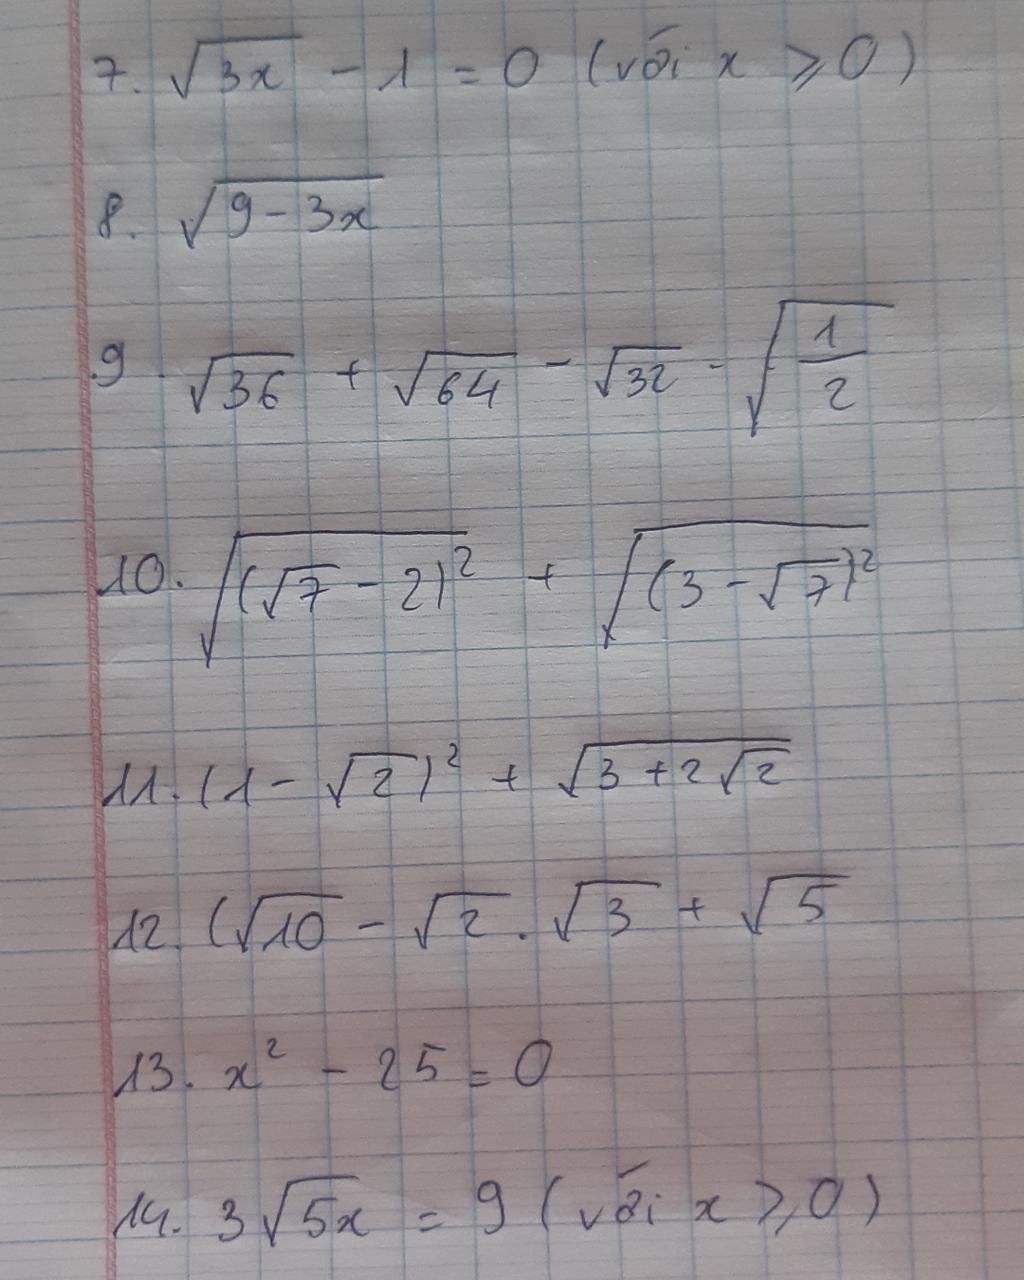 7. √3x - 1 = 0 (với x ≥ 0)
8. √9 - 3x
9. √36 + √64 - √32 - √1/2
10. √(√7 - 2)² + √(3 - √7)²
11. (1 - √2)² + √3 + 2√2
12. (√10 - √2 . √3 + √5
13. x² - 25 = 0
14. 3√5x = 9 (với x ≥ 0)